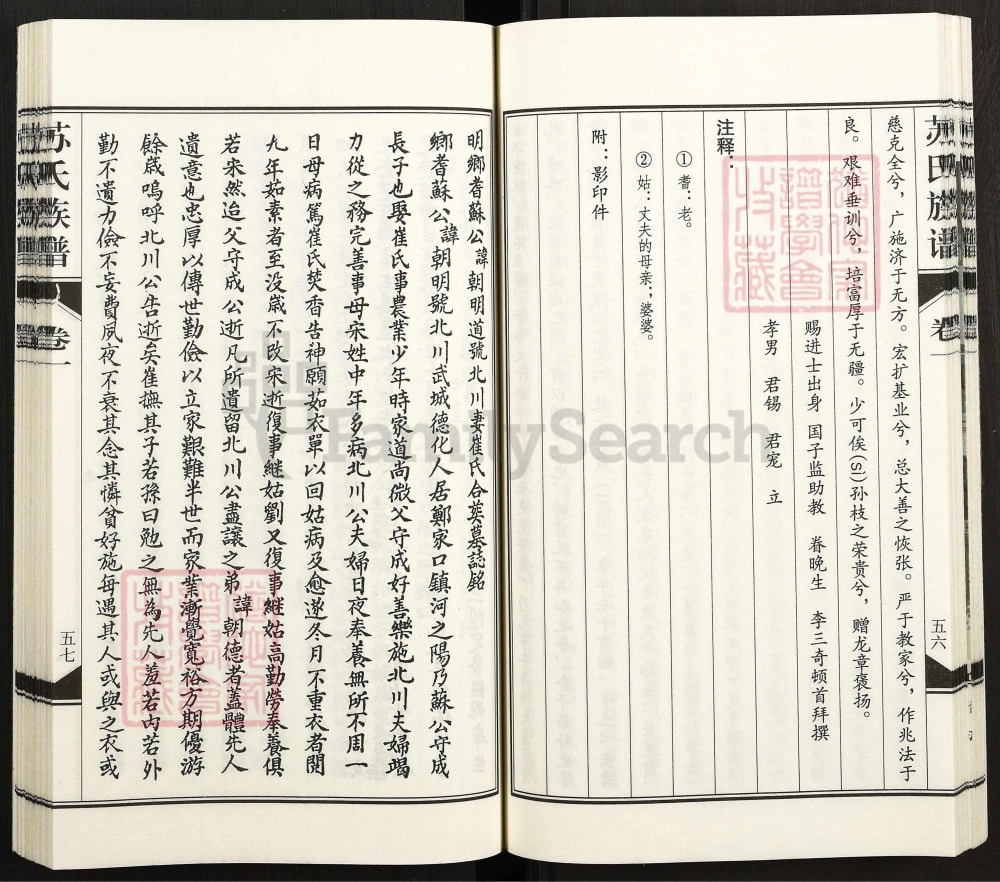 苏氏族谱
卷一
五六
慈克全兮，广施济于无方。宏扩基业兮，总大善之恢张。严于教家兮，作兆法于
良。艰难垂训兮，培富厚于无疆。少可俟(sì)孙枝之荣贵兮，赠龙章褒扬。
赐进士出身 国子监助教 眷晚生 李三奇顿首拜撰
孝男 君锡 君宠 立
注释：
①耆：老。
②姑：丈夫的母亲；婆婆。
附：影印件
明鄉耆蘇公諱朝明道號北川妻崔氏合葬墓誌銘
鄉耆蘇公諱朝明號北川武城德化人居鄭家口鎮河之陽乃蘇公守成
長子也娶崔氏事農業少年時家道尚微父守成好善樂施北川夫婦竭
力從之務完善事母宋姓中年多病北川公夫婦日夜奉養無所不周一
日母病篤崔氏焚香告神願茹衣單以回姑病及愈遂冬月不重衣者閱
九年茹素者至没歲不改宋逝復事継姑劉又復事継姑高勤勞奉養俱
若宋然迨父守成公逝凡所遺留北川公盡讓之弟諱朝德者蓋體先人
遺意也忠厚以傳世勤儉以立家艱難半世而家業漸覺寬裕方期優游
餘歲嗚呼北川公告逝矣崔撫其子若孫曰勉之無為先人羞若内若外
勤不遺力儉不妄費夙夜不衰其念其憐貧好施每遇其人或與之衣或
苏氏族谱
卷一
五七
FamilySearch